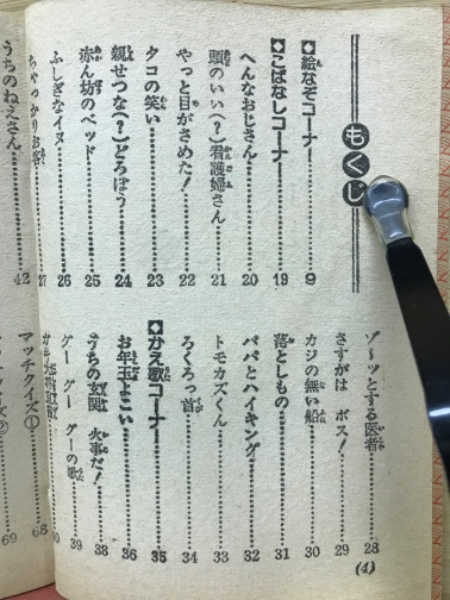 もくじ
◆絵なぞコーナー……9
◆こばなしコーナー……19
へんなおじさん……20
頭のいい(?)看護婦さん……21
やっと目がさめた!……22
タコの笑い……23
親せつな(?)どろぼう……24
赤ん坊のベッド……25
ふしぎなイヌ……26
ちゃっかりお客……27
ゾーッとする医者……28
さすがは ボス!……29
カジの無い船……30
落としもの……31
パパとハイキング……32
トモカズくん……33
ろくろっ首……34
◆かえ歌コーナー……35
お年玉よこい……36
うちの玄関 火事だ!……38
グー グー グーの……39
(4)
うちのねえさん……42
マッチクイズ①……68
69